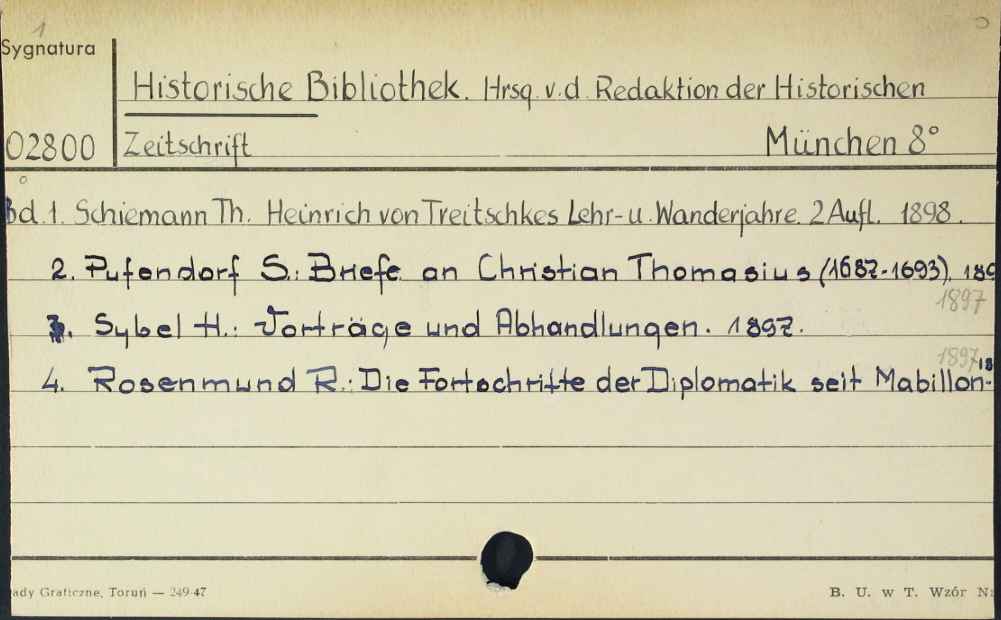 1
Sygnatura
Historische Bibliothek. Hrsg. v.d. Redaktion der Historischen
02800 Zeitschrift München 8°
Bd. 1. Schiemann Th. Heinrich von Treitschkes Lehr- u. Wanderjahre. 2 Aufl. 1898.
2. Pufendorf S.: Briefe an Christian Thomasius (1687-1693). 189
1897
3. Sybel H.: Vorträge und Abhandlungen. 1897.
1897
18
4. Rosenmund R.: Die Fortschritte der Diplomatik seit Mabillon-
ady Graficzne, Toruń — 249-47
B. U. w T. Wzór N